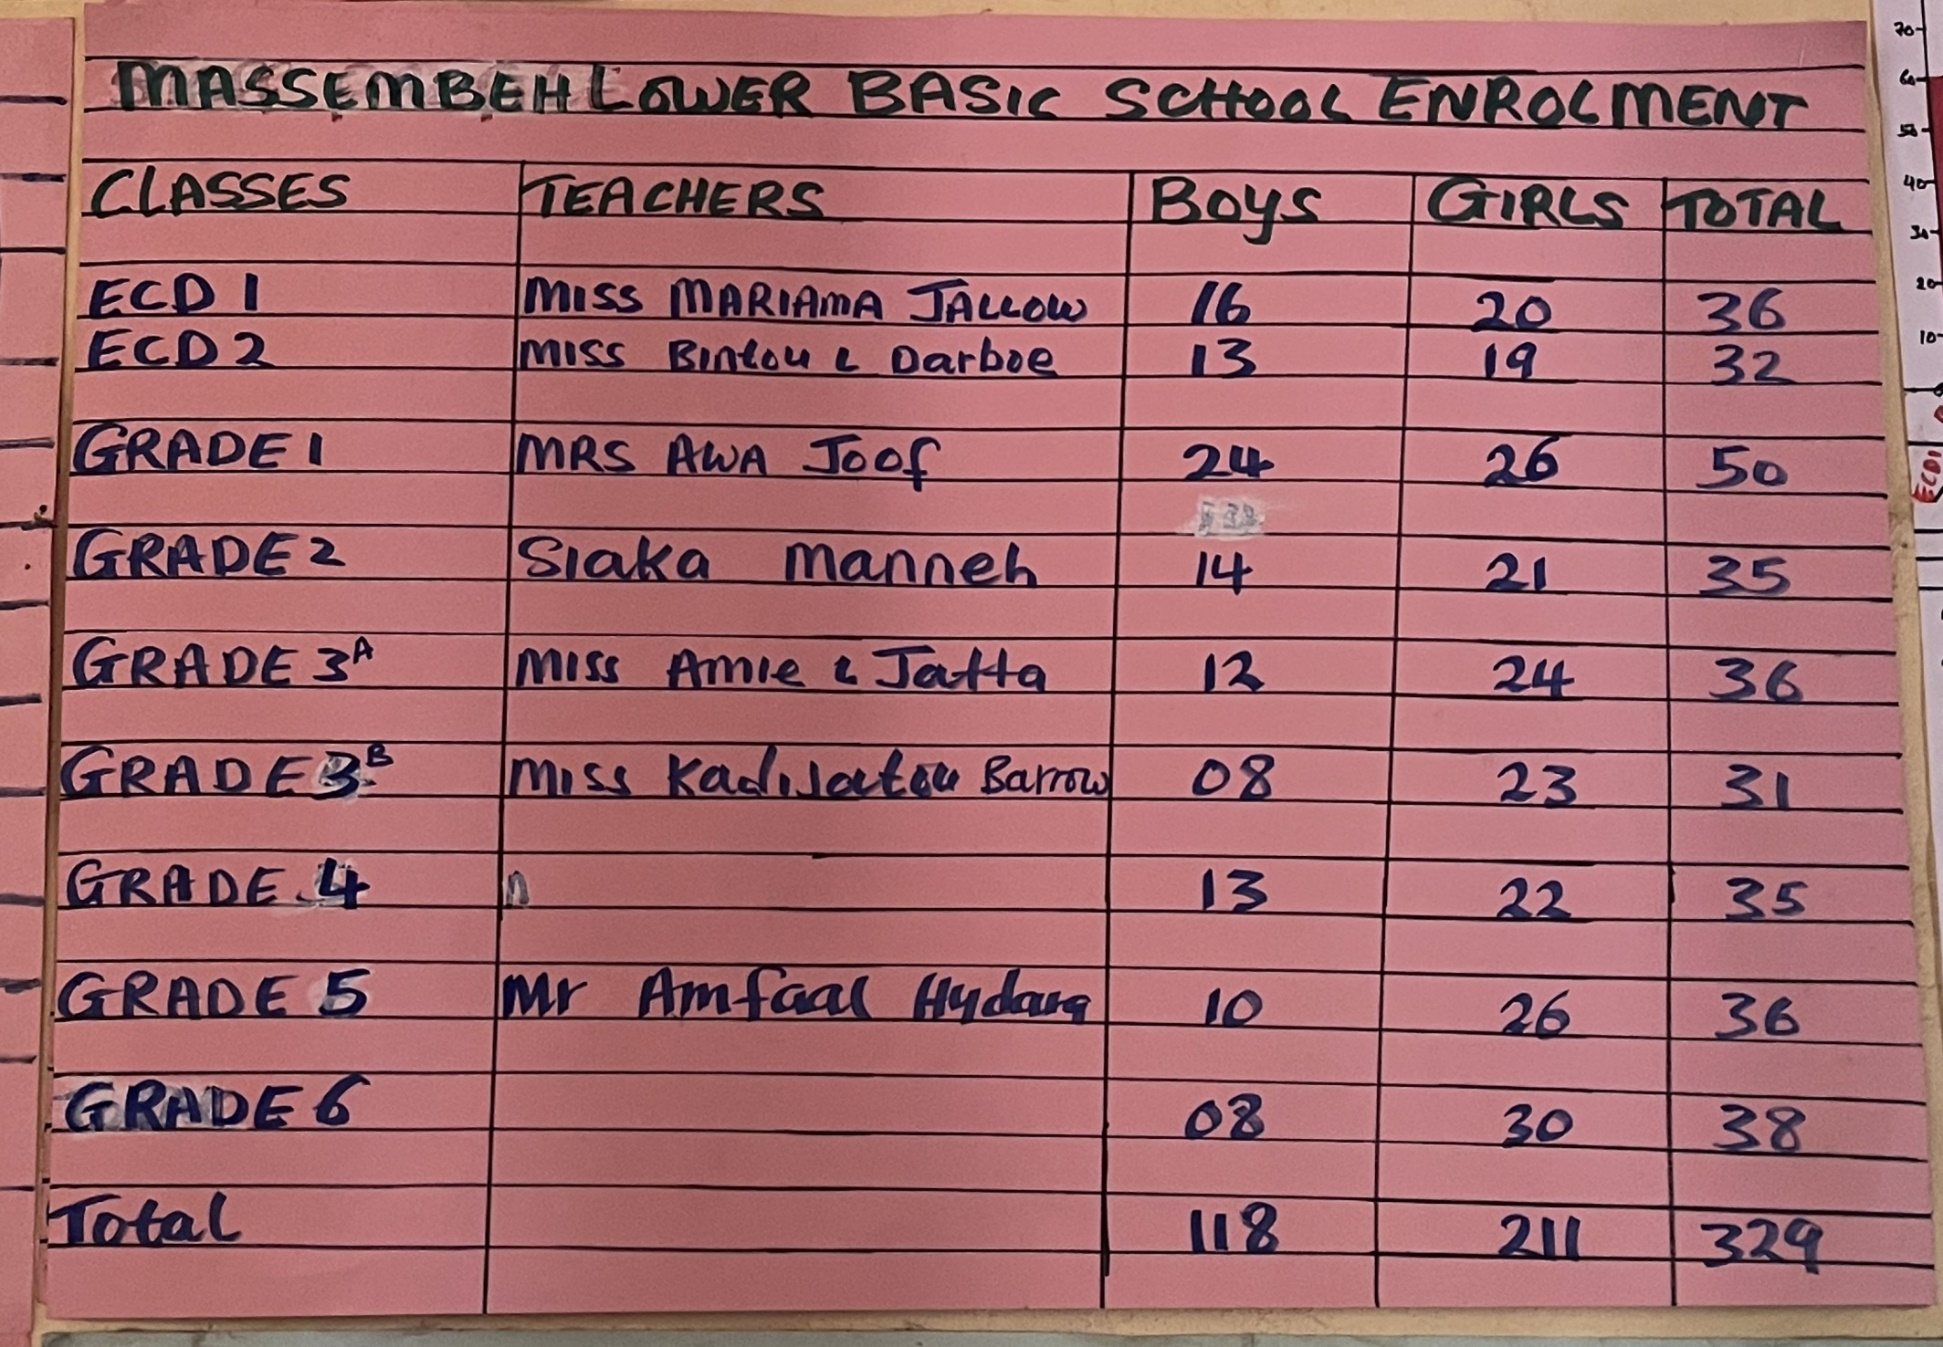 MASSEMBEH LOWER BASIC SCHOOL ENROLMENT
CLASSES TEACHERS BOYS GIRLS TOTAL
ECD 1 MISS MARIAMA JALLOW 16 20 36
ECD 2 MISS Bintou L Darboe 13 19 32
GRADE 1 MRS AWA Joof 24 26 50
GRADE 2 Siaka Manneh 14 21 35
GRADE 3A Miss Amie L Jatta 12 24 36
GRADE 3B Miss Kadijatou Barrow 08 23 31
GRADE 4 13 22 35
GRADE 5 Mr Amfaal Hydara 10 26 36
GRADE 6 08 30 38
Total 118 211 329
70
60
50
40
30
20
10
0
ECD1